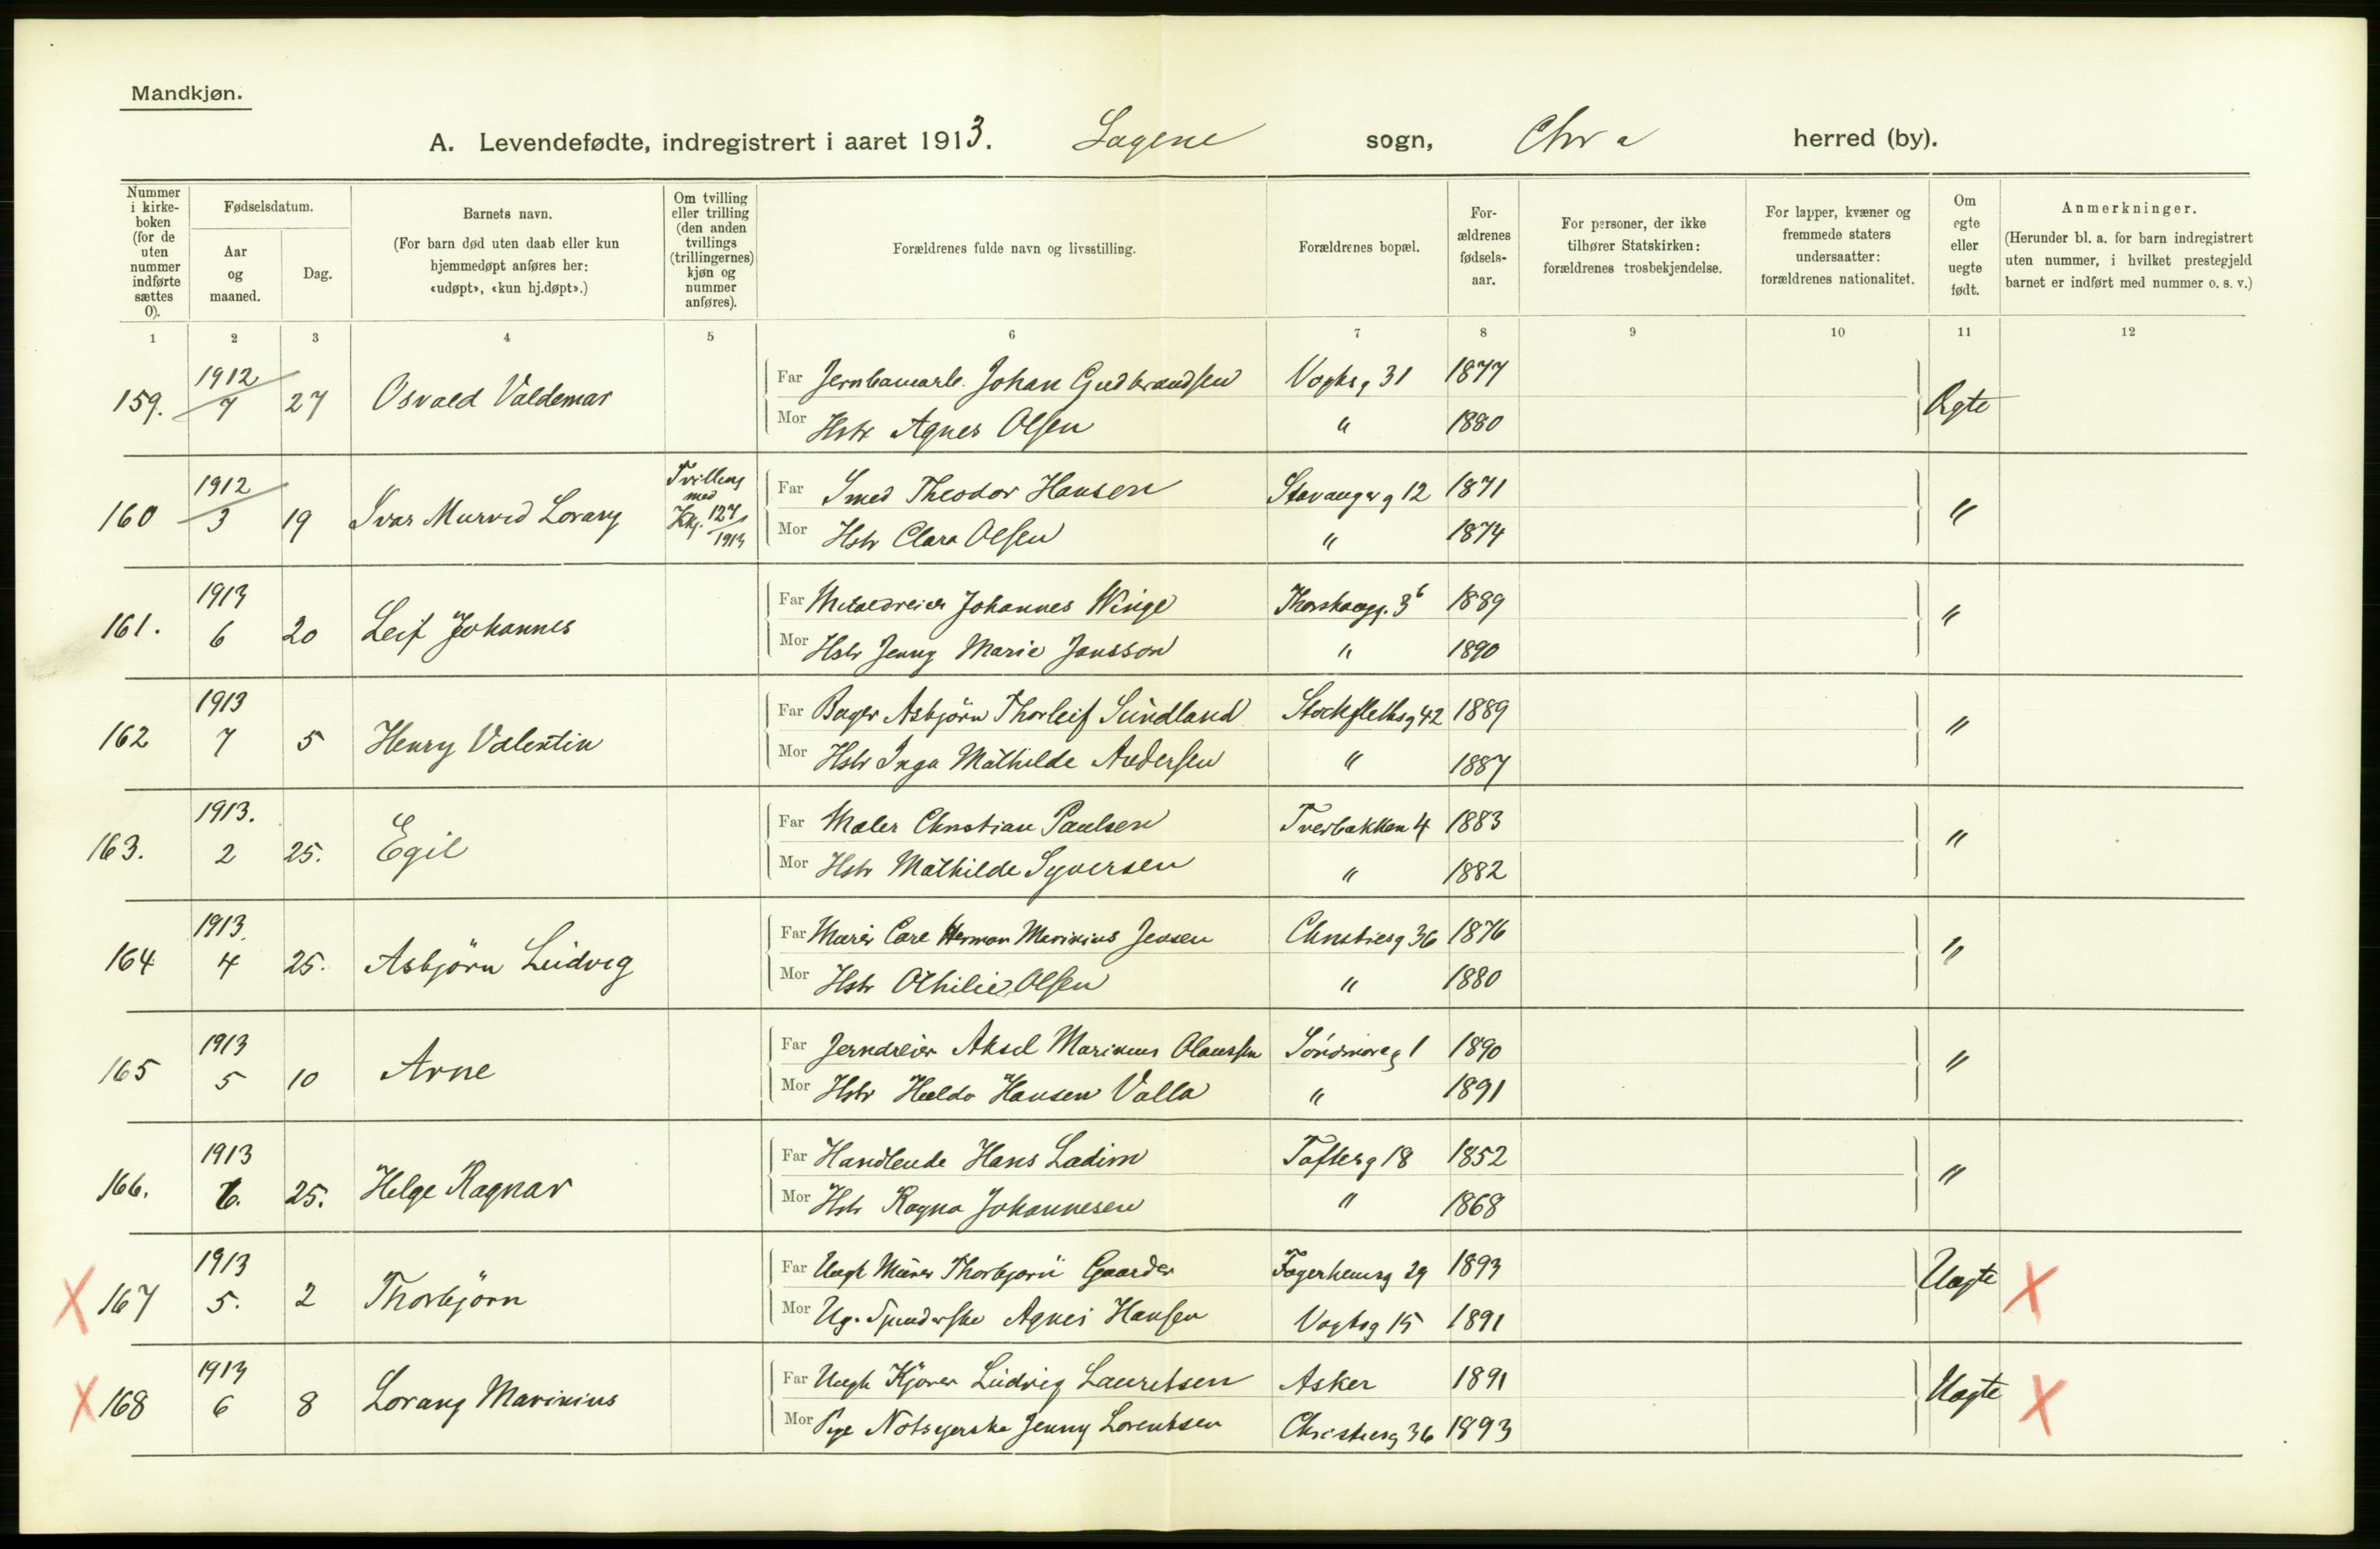 Mandkjøn.
A. Levendefødte, indregistrert i aaret 1913. Sagene sogn, Chra herred (by).
Nummer i kirke-boken (for de uten nummer indførte sættes 0).
Fødselsdatum.
Aar og maaned.
Dag.
Barnets navn.
(For barn død uten daab eller kun hjemmedøpt anføres her: «udøpt», «kun hj.døpt».)
Om tvilling eller trilling (den anden tvillings (trillingernes) kjøn og nummer anføres).
Forældrenes fulde navn og livsstilling.
Forældrenes bopæl.
For-ældrenes fødsels-aar.
For personer, der ikke tilhører Statskirken: forældrenes trosbekjendelse.
For lapper, kvæner og fremmede staters undersaatter: forældrenes nationalitet.
Om egte eller uegte født.
Anmerkninger.
(Herunder bl. a. for barn indregistrert uten nummer, i hvilket prestegjeld barnet er indført med nummer o. s. v.)
1 2 3 4 5 6 7 8 9 10 11 12
159. 1912 7 27 Osvald Valdemar Far Jernbanearb. Johan Gudbrandsen Vogtsg 31 1877 Ægte
Mor Hstr Agnes Olsen " 1880
160 1912 3 19 Ivar Murvid Lorang Tvilling med Kkj. 127/1913 Far Smed Theodor Hansen Stavangerg 12 1871 "
Mor Hstr Clara Olsen " 1874
161. 1913 6 20 Leif Johannes Far Metaldreier Johannes Winge Thorshaugg. 3b 1889 "
Mor Hstr Jenny Marie Jansson " 1890
162 1913 7 5 Henry Valentin Far Bager Asbjörn Thorleif Sundland Stockflethsg 42 1889 "
Mor Hstr Inga Mathilde Andersen " 1887
163. 1913. 2 25. Egil Far Maler Christian Paulsen Tverbakken 4 1883 "
Mor Hstr Mathilde Syversen " 1882
164 1913. 4 25. Asbjörn Ludvig Far Murer Carl Herman Marinius Jensen Christiesg 36 1876 "
Mor Hstr Othilie Olsen " 1880
165 1913 5 10 Arne Far Jerndreier Aksel Marinius Olaussen Söndmöreg 1 1890 "
Mor Hstr Hulda Hansen Valla " 1891
166. 1913 6. 25. Helge Ragnar Far Handlende Hans Ladim Toftesg 18 1852 "
Mor Hstr Ragna Johannesen " 1868
X 167 1913 5. 2 Thorbjörn Far Ungk Murer Thorbjørn Gaarder Fagerheimsg 29 1893 Uægte X
Mor Ug. Spinderske Agnes Hansen Vogtsg 15 1891
X 168 1913 6 8 Lorang Marinius Far Ungk Kjörer Ludvig Lauritsen Asker 1891 Uægte X
Mor Pige Jenny Lorentsen Christiesg 36 1893